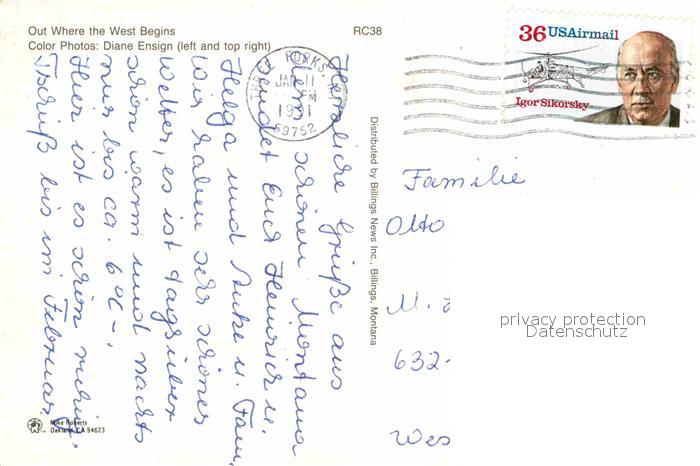 Out Where the West Begins
Color Photos: Diane Ensign (left and top right)
RC38
36 USAirmail
Igor Sikorsky
THREE FORKS,
JAN 11
PM
1991
59752
Herzliche Grüße aus
dem schönen Montana
sendet Euch Heinrich u.
Helga und Anke u. Fam.
Wir haben sehr schönes
Wetter, es ist tagsüber
schon warm und nachts
nur bis ca. 6°C-.
Hier ist es schon ruhig.
Tschüß bis im Februar
Distributed by Billings News Inc., Billings, Montana
Familie
Otto
M.
632
Wes
privacy protection
Datenschutz
Mike Roberts
Oakland, CA 94623